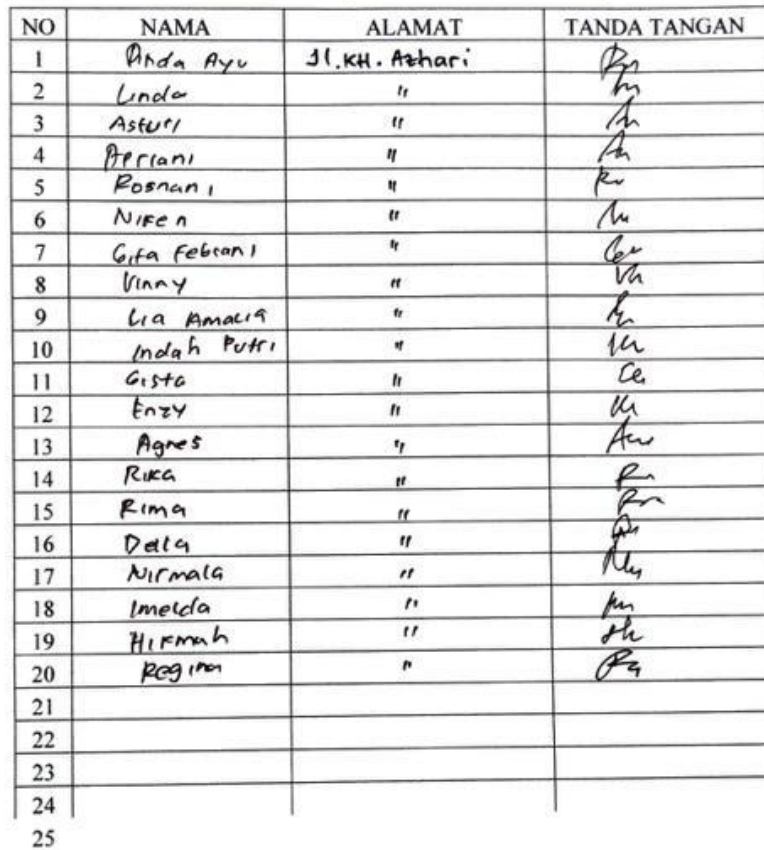 NO NAMA ALAMAT TANDA TANGAN
1 Dinda Ayu Jl. KH. Azhari
2 Linda "
3 Astuti "
4 Apriani "
5 Rosnani "
6 Niken "
7 Gita Febriani "
8 Vinny "
9 Lia Amalia "
10 Indah Putri "
11 Gista "
12 Enzy "
13 Agnes "
14 Rika "
15 Rima "
16 Della "
17 Nirmala "
18 Imelda "
19 Hikmah "
20 Regina "
21
22
23
24
25